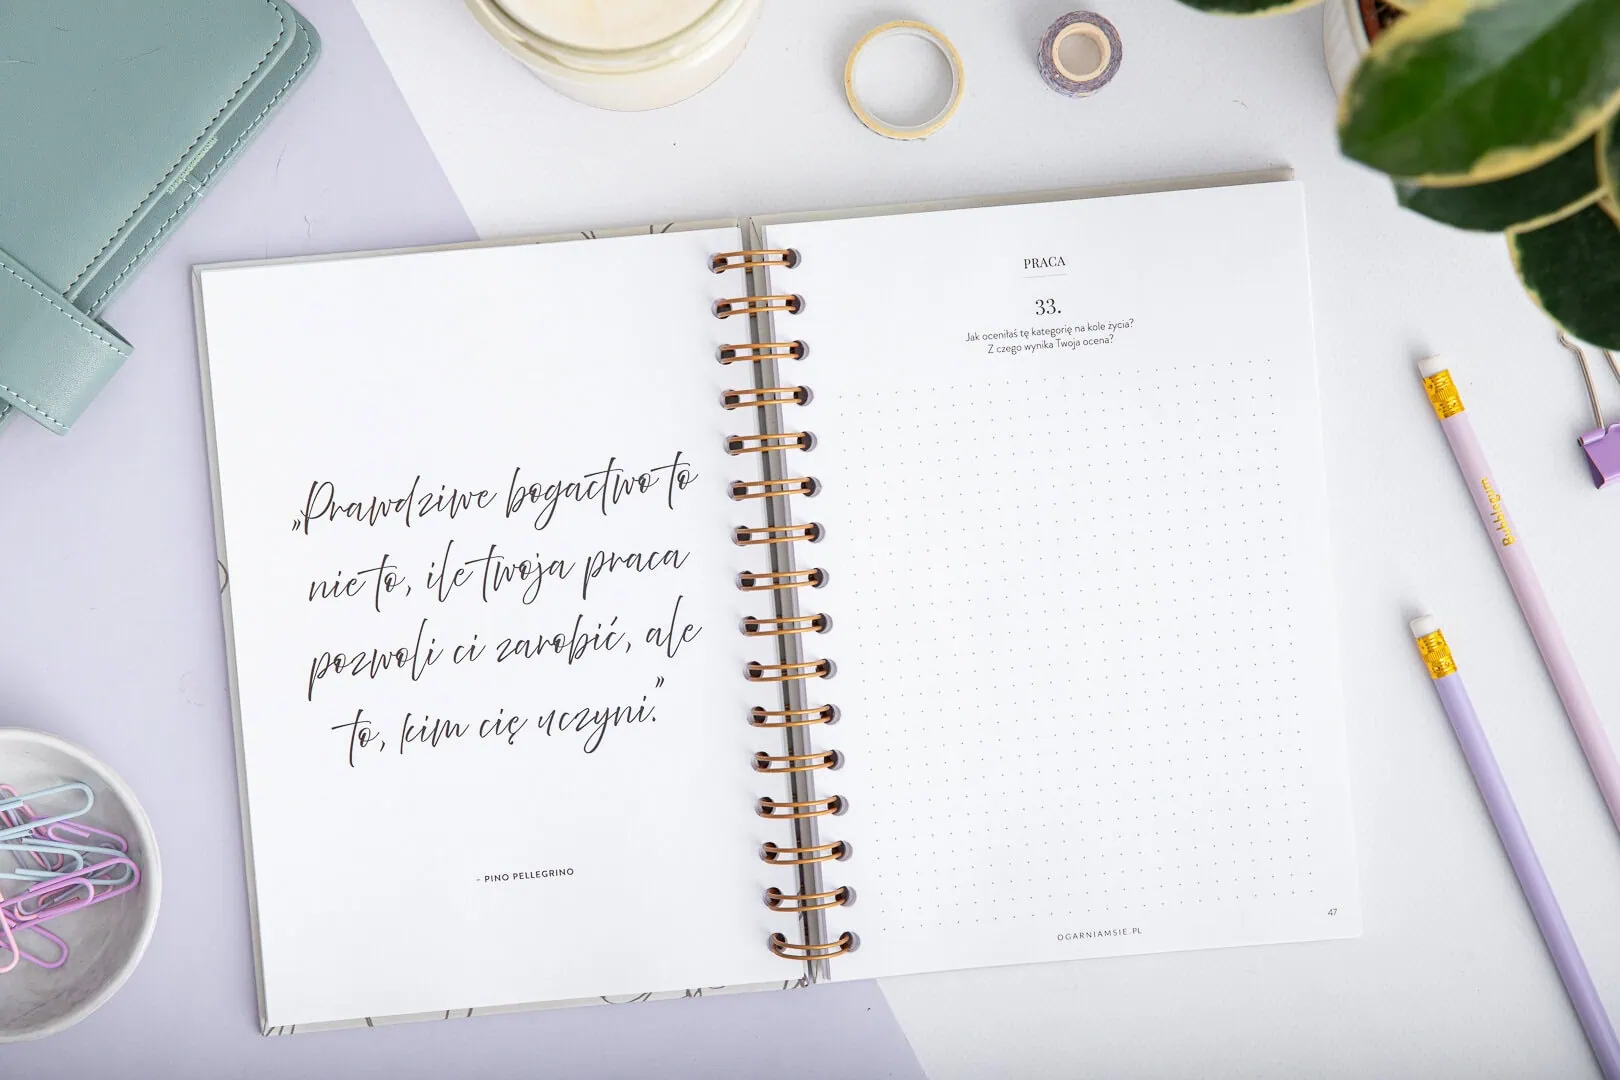 „Prawdziwe bogactwo to
nie to, ile twoja praca
pozwoli ci zarobić, ale
to, kim cię uczyni.”
- PINO PELLEGRINO
PRACA
33.
Jak oceniłaś tę kategorię na kole życia?
Z czego wynika Twoja ocena?
47
OGARNIAMSIE.PL